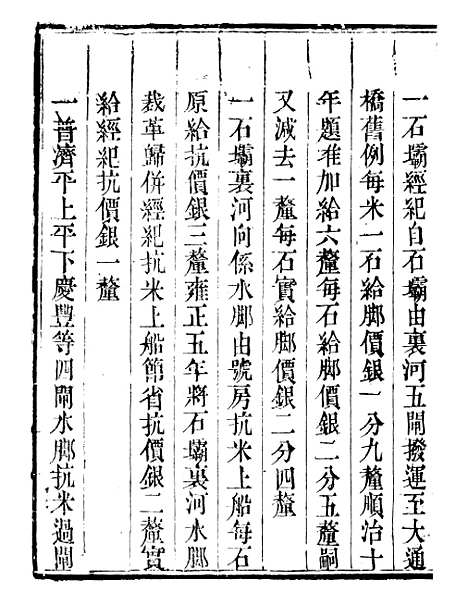 一石壩經紀自石壩由裏河五閘撥運至大通
橋舊例每米一石給脚價銀一分九釐順治十
年題准加給六釐每石給脚價銀二分五釐嗣
又減去一釐每石實給脚價銀二分四釐
一石壩裏河向係水脚由號房抗米上船每石
原給抗價銀三釐雍正五年將石壩裏河水脚
裁革歸併經紀抗米上船節省抗價銀二釐實
給經紀抗價銀一釐
一普濟平上平下慶豐等四閘水脚抗米過閘